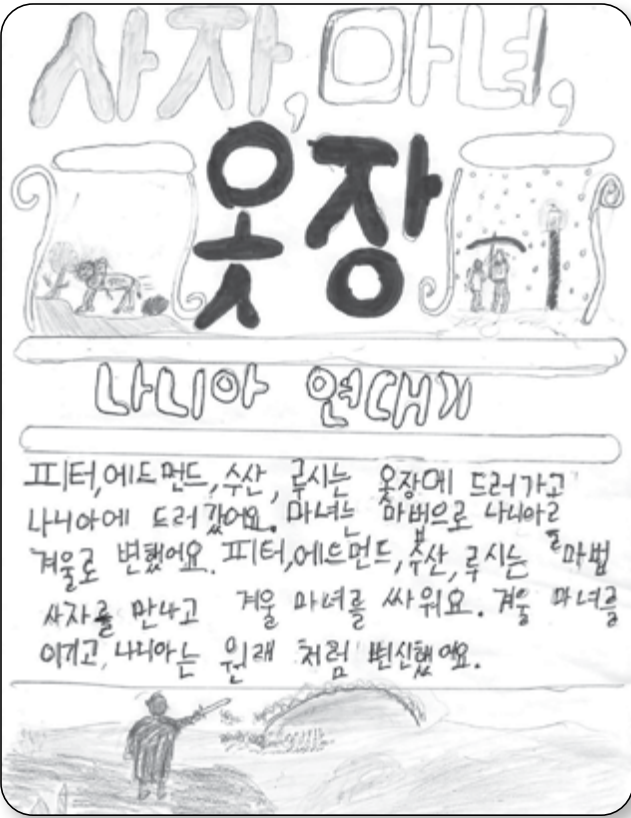 사자, 마녀,
옷장
나니아 연대기
피터, 에드먼드, 수산, 루시는 옷장에 드러가고
나니아에 드러갔어요. 마녀는 마버으로 나니아를
겨울로 변했어요. 피터, 에드먼드, 수산, 루시는 마법
사자를 만나고 겨울 마녀를 싸워요. 겨울 마녀를
이기고, 나니아는 원래 처럼 변신했어요.